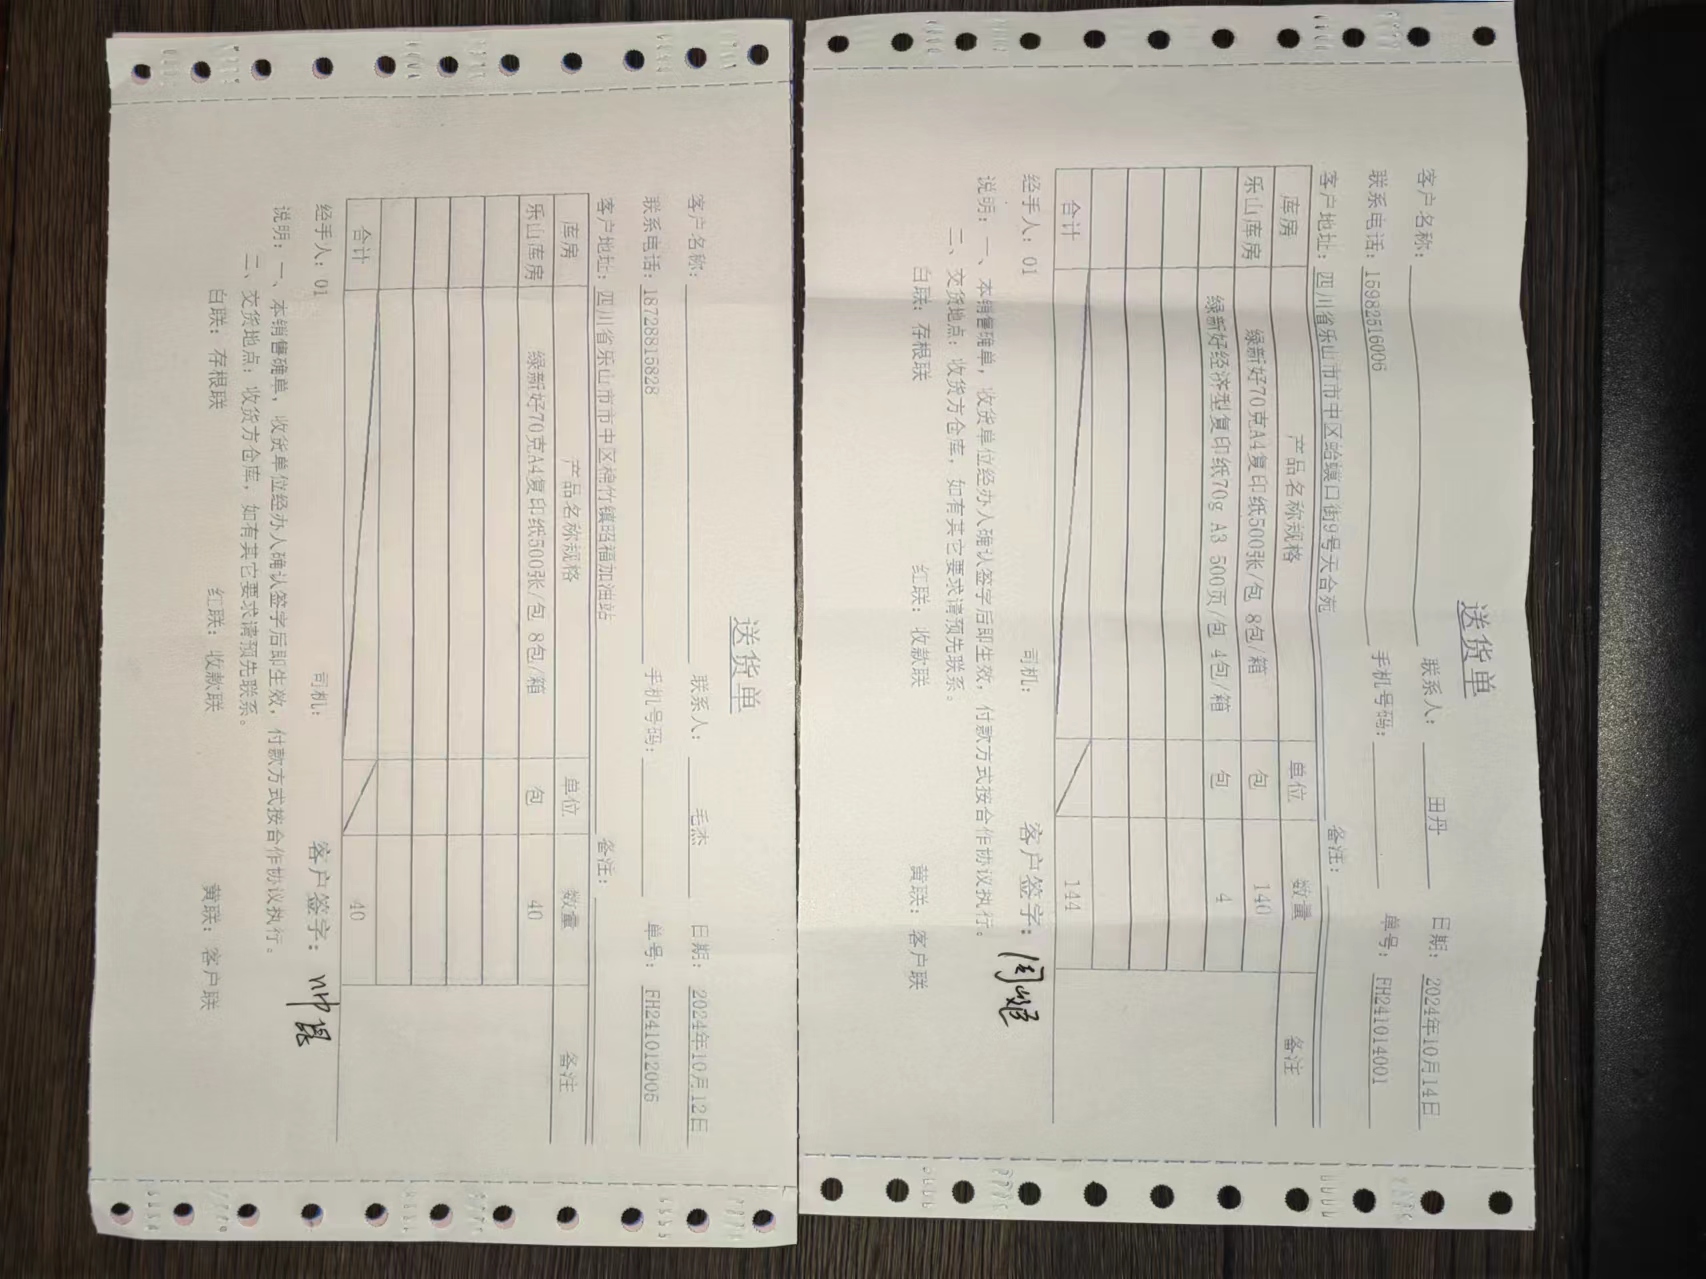 送货单
客户名称： 联系人： 田丹 日期： 2024年10月14日
联系电话：15982516006 手机号码： 单号： FH241014001
客户地址： 四川省乐山市市中区蛤蟆口街9号天合苑 备注：
库房 产品名称规格 单位 数量 备注
乐山库房 绿新好70克A4复印纸500张/包 8包/箱 包 140
绿新好经济型复印纸70g A3 500页/包 4包/箱 包 4
合计 144
经手人：01 司机： 客户签字：
说明：一、本销售确单，收货单位经办人确认签字后即生效，付款方式按合作协议执行。
二、交货地点：收货方仓库，如有其它要求请预先联系。
白联：存根联 红联：收款联 黄联：客户联
送货单
客户名称： 联系人： 毛杰 日期： 2024年10月12日
联系电话：18728815828 手机号码： 单号： FH241012006
客户地址： 四川省乐山市市中区棉竹镇昭福加油站 备注：
库房 产品名称规格 单位 数量 备注
乐山库房 绿新好70克A4复印纸500张/包 8包/箱 包 40
合计 40
经手人：01 司机： 客户签字：
说明：一、本销售确单，收货单位经办人确认签字后即生效，付款方式按合作协议执行。
二、交货地点：收货方仓库，如有其它要求请预先联系。
白联：存根联 红联：收款联 黄联：客户联